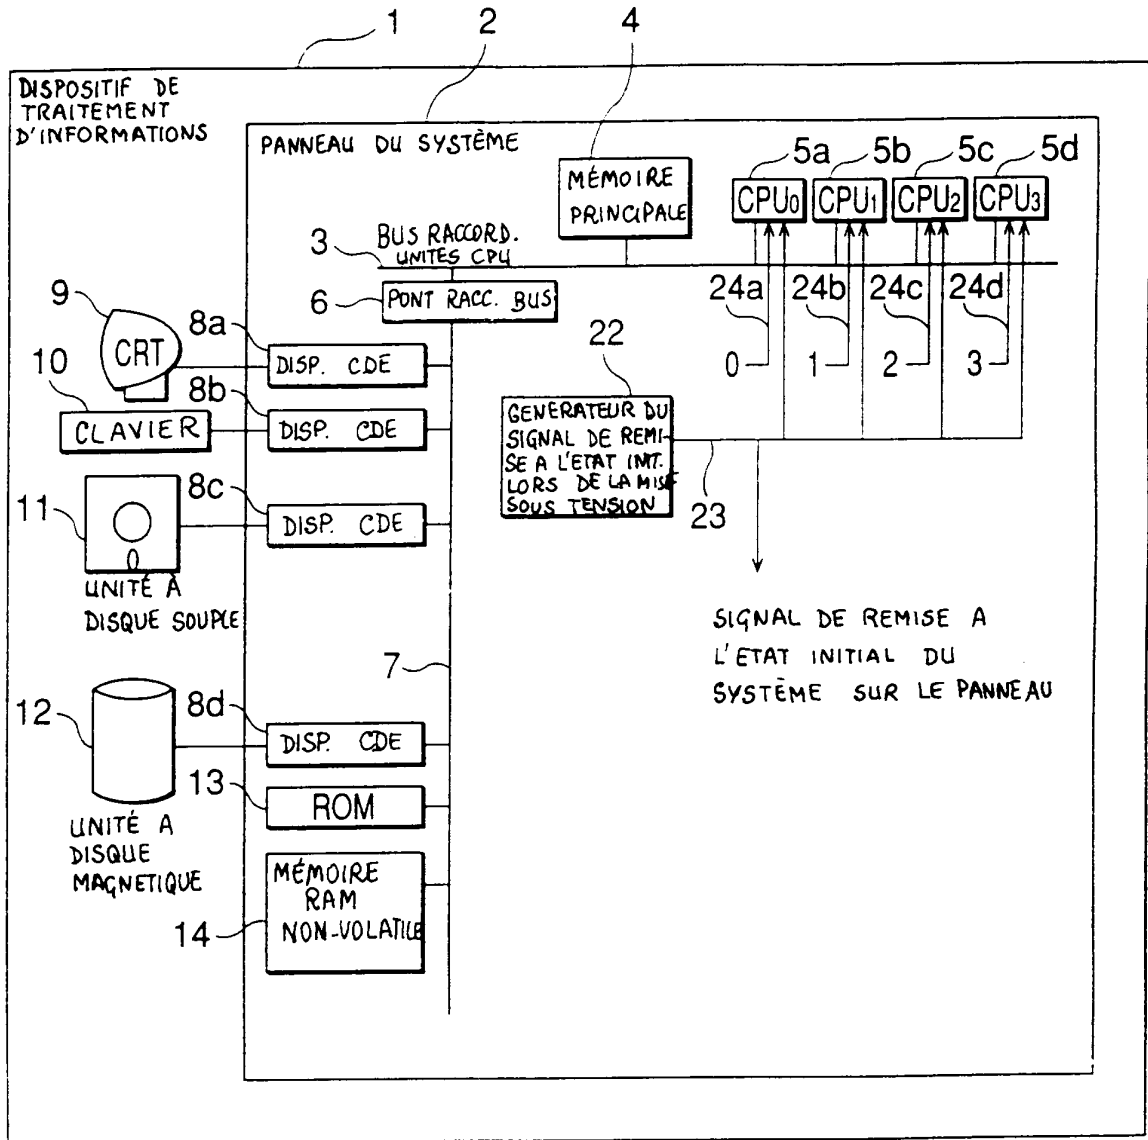 1
2
4
DISPOSITIF DE
TRAITEMENT
D'INFORMATIONS
PANNEAU DU SYSTÈME
MÉMOIRE
PRINCIPALE
5a
5b
5c
5d
CPU0
CPU1
CPU2
CPU3
3
BUS RACCORD.
UNITÉS CPU
6
PONT RACC. BUS
24a
24b
24c
24d
0
1
2
3
9
CRT
8a
DISP. CDE
10
CLAVIER
8b
DISP. CDE
22
GENERATEUR DU
SIGNAL DE REMI-
SE A L'ETAT INIT.
LORS DE LA MISE
SOUS TENSION
23
11
8c
DISP. CDE
UNITÉ À
DISQUE SOUPLE
SIGNAL DE REMISE A
L'ETAT INITIAL DU
SYSTÈME SUR LE PANNEAU
7
12
8d
DISP. CDE
13
ROM
UNITÉ A
DISQUE
MAGNETIQUE
14
MÉMOIRE
RAM
NON-VOLATILE